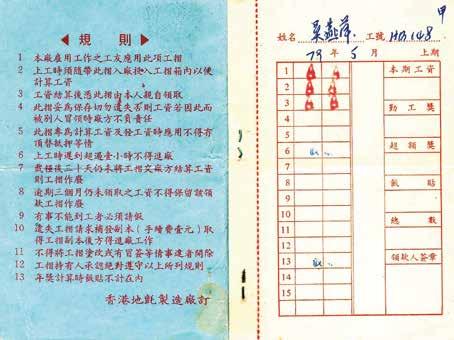 ◀ 規則 ▶
1 本廠雇用工作之工友應用此項工摺
2 上工時須隨帶此摺入廠投入工摺箱內以便
計算工資
3 工資結算後憑此摺由本人親自領取
4 此摺妥為保存切勿遺失否則工資若因此而
被別人冒領時廠方不負責任
5 此摺專為計算工資及發工資時應用不得有
頂替抵押等情
6 上工時遲到超過壹小時不得進廠
7 截極後二十天仍未將工摺交廠方結算工資
則工摺作廢
8 逾期三個月仍未領取之工資不得保留該領
款工摺作廢
9 有事不能到工者必須請假
10 遺失工摺請求補發副本(手續費壹元)取
得工摺副本後方得進廠工作
11 不得將工摺塗改或有冒簽等情事違者開除
12 工摺持有人承認絕對遵守以上所列規則
13 年獎計算時飯貼不計在內
香港地氈製造廠訂
甲
姓名 工號 HD.148
79 年 5 月 上期
1 本期工資
2
3 勤工獎
4
5
6 超額獎
7
8 飯貼
9
10 總數
11
12 領款人簽章
13
14
15